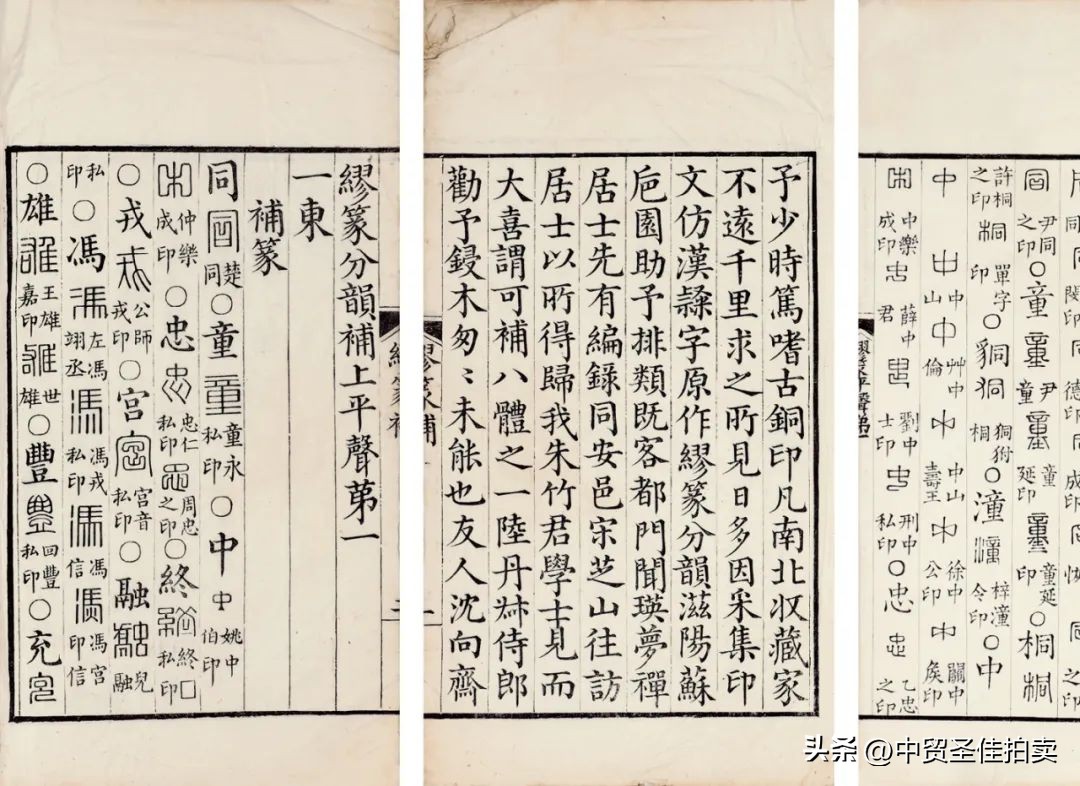 尹同之印○童尹童童延印童延印○桐
許桐之印桐單字印○潼梓潼令印○中
中山中艸中倫中山壽王徐中公印關中矦印
中樂成印薛中君劉中士印刑中私印○忠乙忠之印
予少時篤嗜古銅印凡南北收藏家
不遠千里求之所見日多因采集印
文仿漢隸字原作繆篆分韻滋陽蘇
巵園助予排類既客都門聞瑛夢禪
居士先有編錄同安邑宋芝山往訪
居士以所得歸我朱竹君學士見而
大喜謂可補八體之一陸丹叔侍郎
勸予鋟木匆〻未能也友人沈向齋
繆篆補
繆篆分韻補上平聲苐一
一東
補篆
同楚同○童童永私印○中姚中伯印
仲樂成印○忠忠仁私印周忠之印○終終口私印
○戎公師戎印○宮宮音私印○融兒融
私印○馮左馮翊丞馮戎私印馮信馮宮印信
○雄王雄嘉印世雄○豐回豐私印○充
头条 @中贸圣佳拍卖